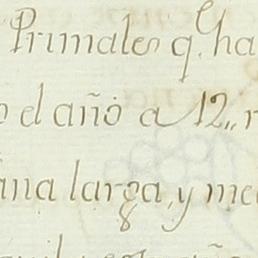 Primales q.ᵉ ha
o el año a 12,, r
ana larga, y me